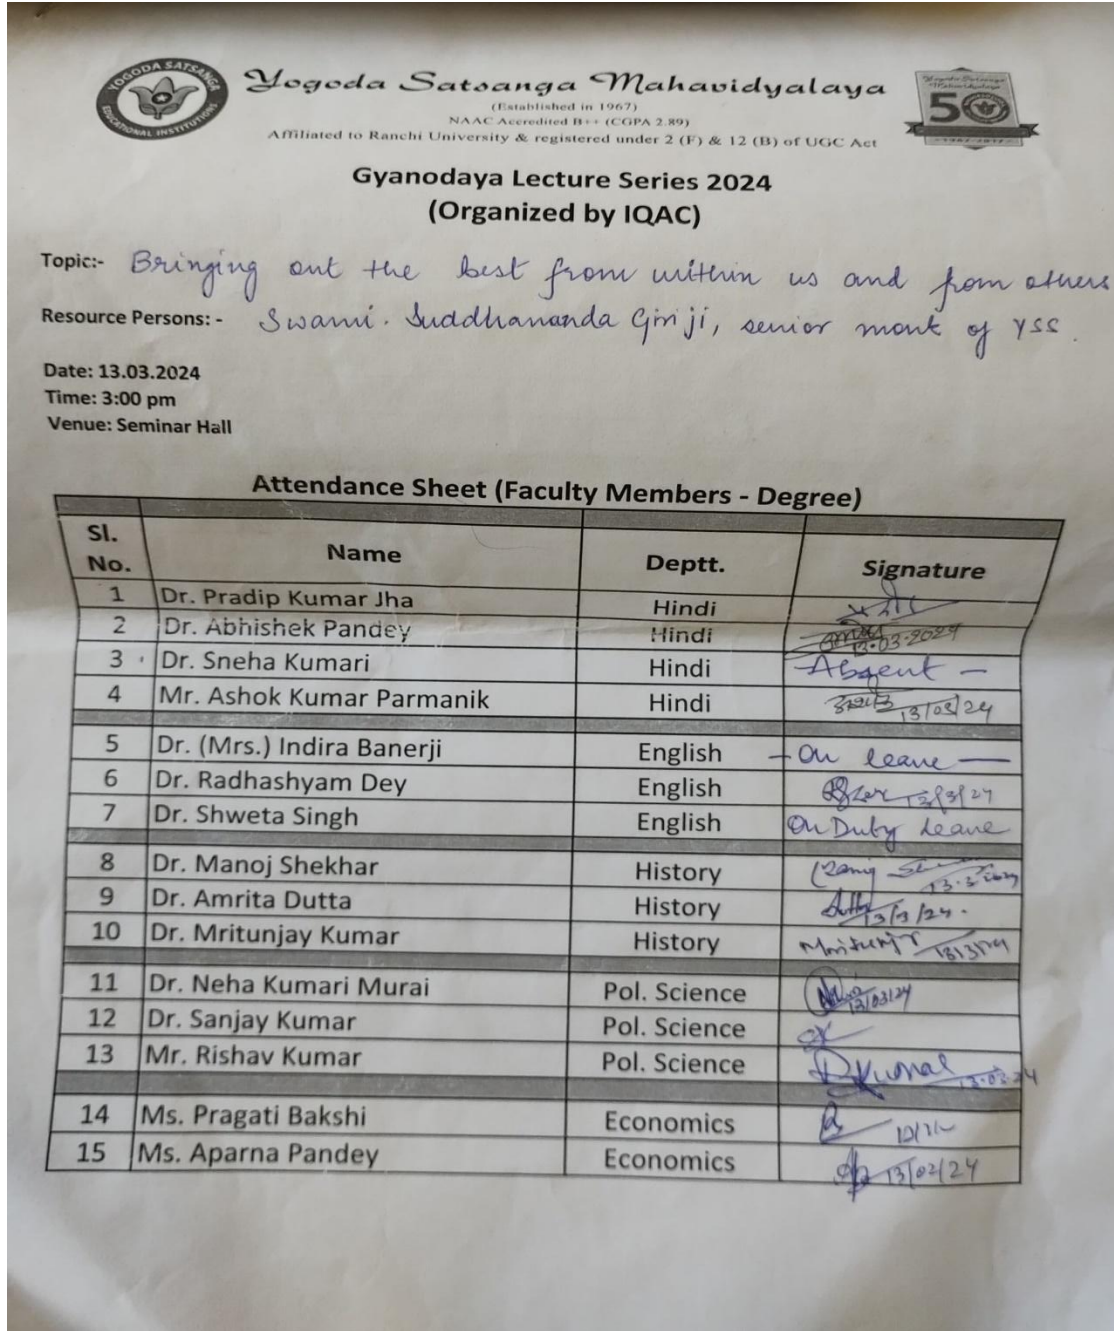 YOGODA SATSANGA
EDUCATIONAL INSTITUTIONS
Yogoda Satsanga Mahavidyalaya
(Established in 1967)
NAAC Accredited B++ (CGPA 2.89)
Affiliated to Ranchi University & registered under 2 (F) & 12 (B) of UGC Act
Yogoda Satsanga
Mahavidyalaya
50
Gyanodaya Lecture Series 2024
(Organized by IQAC)
Topic:- Bringing out the best from within us and from others
Resource Persons: - Swami. Suddhananda Giri ji, senior monk of YSS.
Date: 13.03.2024
Time: 3:00 pm
Venue: Seminar Hall
Attendance Sheet (Faculty Members - Degree)
Sl. No. Name Deptt. Signature
1 Dr. Pradip Kumar Jha Hindi
2 Dr. Abhishek Pandey Hindi 13.03.2024
3 Dr. Sneha Kumari Hindi Absent -
4 Mr. Ashok Kumar Parmanik Hindi 13/03/24
5 Dr. (Mrs.) Indira Banerji English - On leave -
6 Dr. Radhashyam Dey English 13/3/24
7 Dr. Shweta Singh English On Duty Leave
8 Dr. Manoj Shekhar History 13.3.2024
9 Dr. Amrita Dutta History 13/3/24.
10 Dr. Mritunjay Kumar History 13/3/24
11 Dr. Neha Kumari Murai Pol. Science 13/03/24
12 Dr. Sanjay Kumar Pol. Science
13 Mr. Rishav Kumar Pol. Science RKumar 13.03.24
14 Ms. Pragati Bakshi Economics
15 Ms. Aparna Pandey Economics 13/02/24